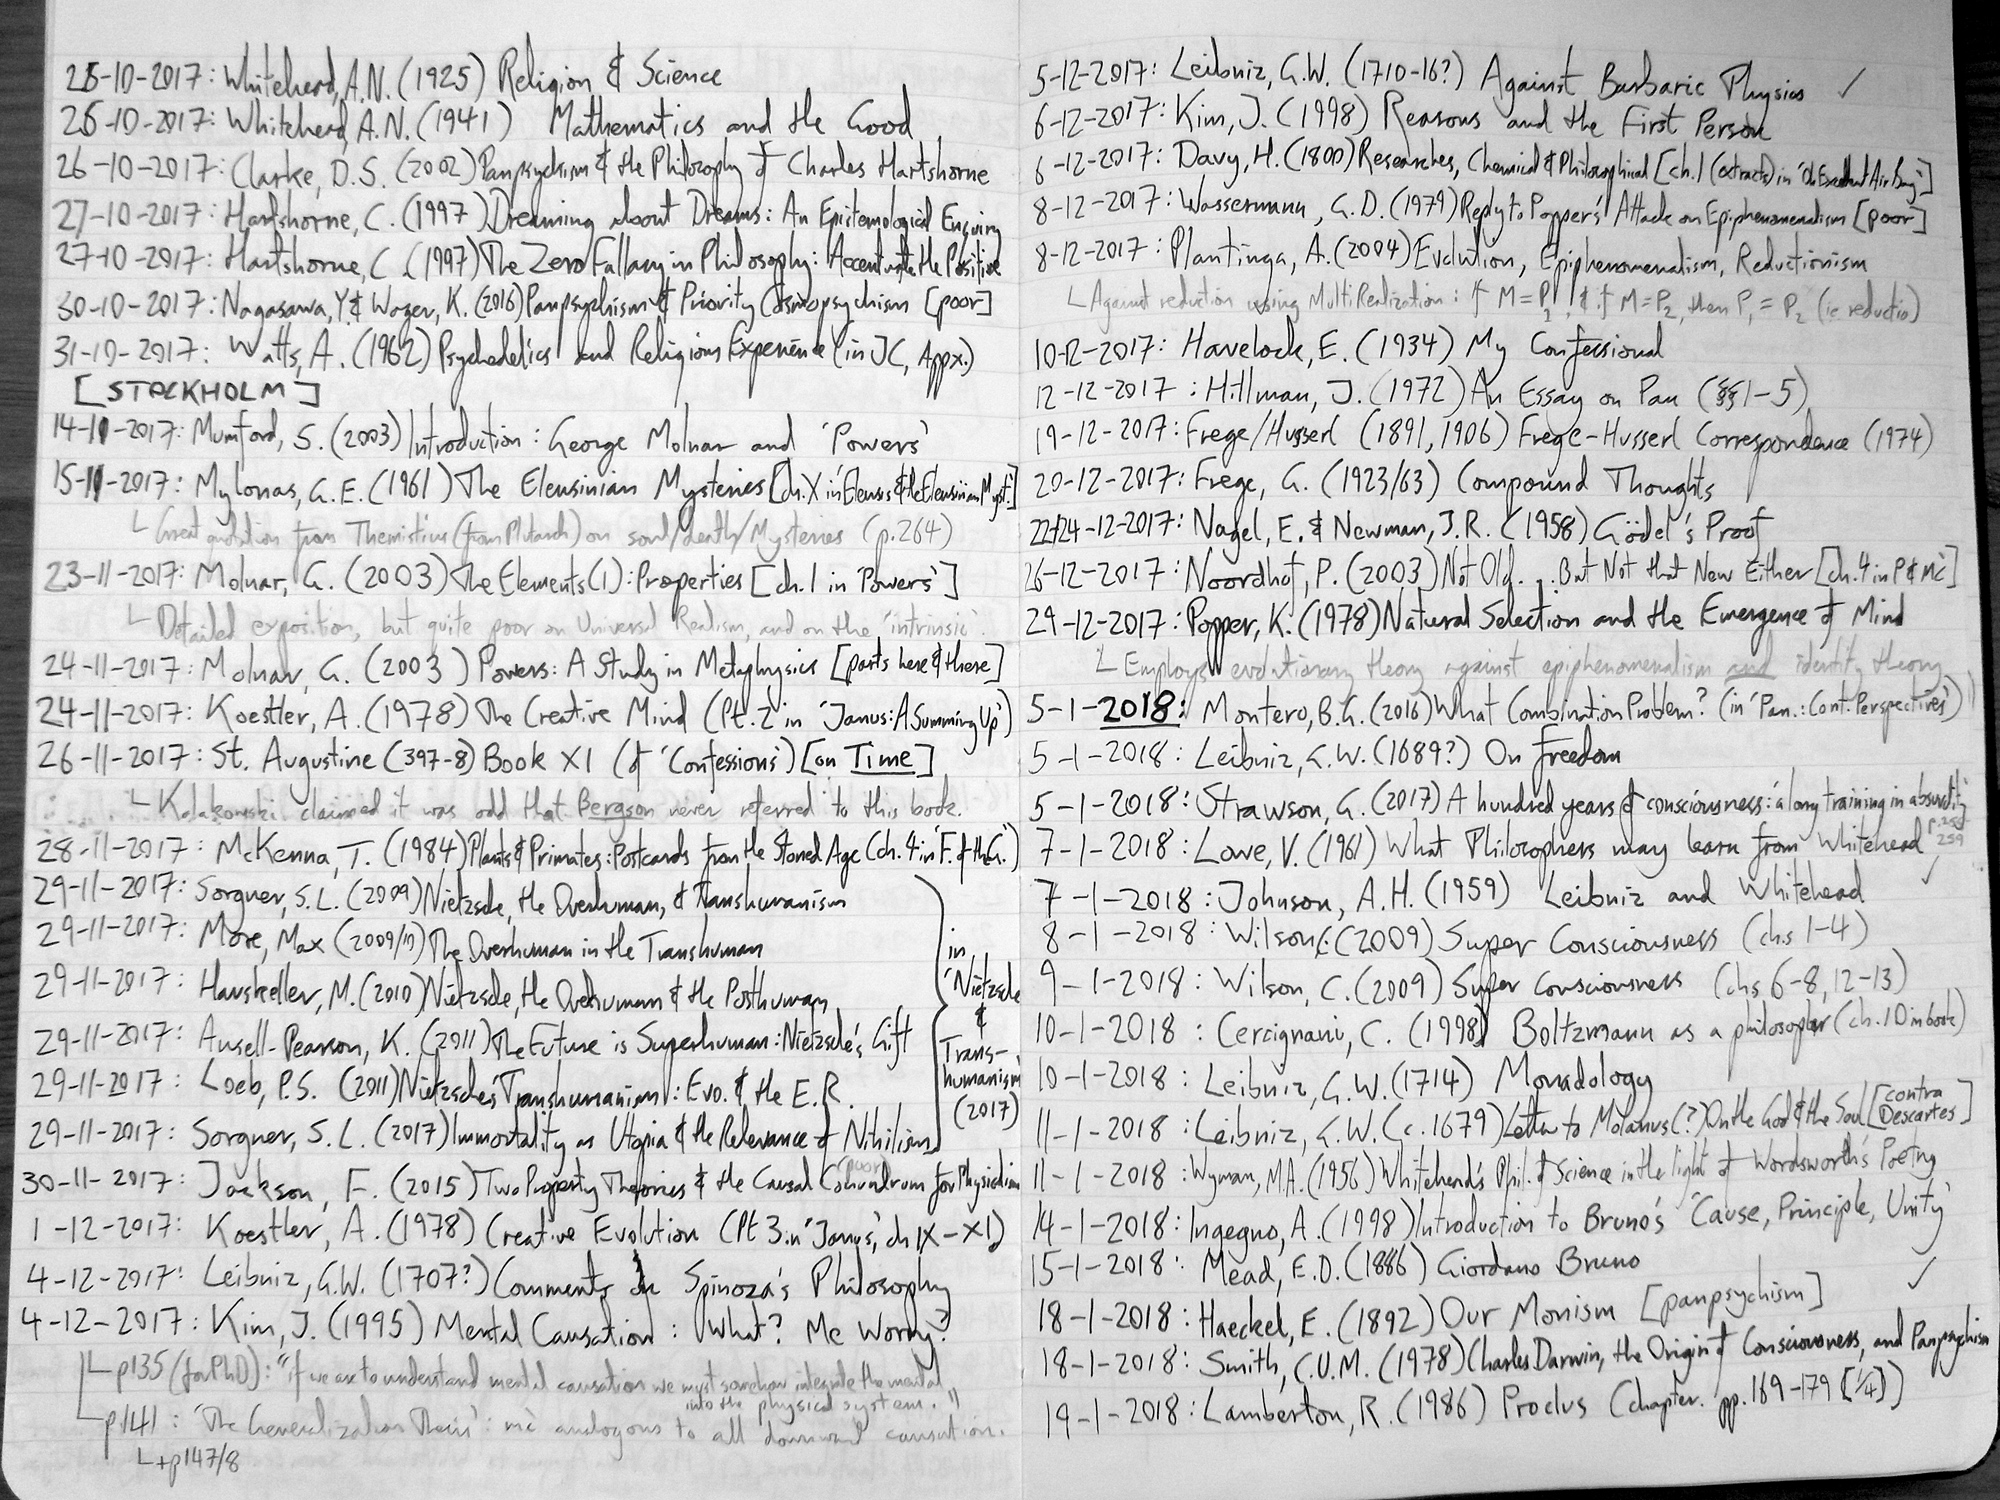 25-10-2017: Whitehead, A.N. (1925) Religion & Science
25-10-2017: Whitehead, A.N. (1941) Mathematics and the Good
26-10-2017: Clarke, D.S. (2002) Panpsychism & the Philosophy of Charles Hartshorne
27-10-2017: Hartshorne, C. (1997) Dreaming about Dreams: An Epistemological Enquiry
27-10-2017: Hartshorne, C. (1997) The Zero Fallacy in Philosophy: Accentuate the Positive
30-10-2017: Nagasawa, Y. & Wager, K. (2016) Panpsychism & Priority Cosmopsychism [poor]
31-10-2017: Watts, A. (1962) Psychedelics and Religious Experience (in JC, Appx.)
[STOCKHOLM]
14-11-2017: Mumford, S. (2003) Introduction: George Molnar and 'Powers'
15-11-2017: Mylonas, G.E. (1961) The Eleusinian Mysteries [ch.X in 'Eleusis & the Eleusinian Myst.']
└ Great quotation from Themistius (from Plutarch) on soul/death/Mysteries (p.264)
23-11-2017: Molnar, G. (2003) The Elements (1): Properties [ch.1 in 'Powers']
└ Detailed exposition, but quite poor on Universal Realism, and on the 'intrinsic'.
24-11-2017: Molnar, G. (2003) Powers: A Study in Metaphysics [parts here & there]
24-11-2017: Koestler, A. (1978) The Creative Mind (Pt.2 in 'Janus: A Summing Up')
26-11-2017: St. Augustine (397-8) Book XI (of 'Confessions') [on Time]
└ Kolakowski claimed it was odd that Bergson never referred to this book.
28-11-2017: McKenna, T. (1984) Plants & Primates: Postcards from the Stoned Age (ch.4 in 'F. of the G.')
29-11-2017: Sorgner, S.L. (2009) Nietzsche, the Overhuman, & Transhumanism
29-11-2017: More, Max (2009/10) The Overhuman in the Transhuman
29-11-2017: Hauskeller, M. (2010) Nietzsche, the Overhuman & the Posthuman
29-11-2017: Ansell-Pearson, K. (2011) The Future is Superhuman: Nietzsche's Gift
29-11-2017: Loeb, P.S. (2011) Nietzsche's Transhumanism: Evo. & the E.R.
29-11-2017: Sorgner, S.L. (2017) Immortality as Utopia & the Relevance of Nihilism
in
'Nietzsche
&
Trans-
humanism'
(2017)
30-11-2017: Jackson, F. (2015) Two Property Theories & the Causal Conundrum for Physicalism
(poor)
1-12-2017: Koestler, A. (1978) Creative Evolution (Pt 3 in 'Janus', ch IX-XI)
4-12-2017: Leibniz, G.W. (1707?) Comments on Spinoza's Philosophy
4-12-2017: Kim, J. (1995) Mental Causation: What? Me Worry?
└ p135 (for PhD): "if we are to understand mental causation we must somehow integrate the mental
into the physical system."
└ p141: 'The Generalization Thesis': mc analogous to all downward causation.
└ +p147/8
5-12-2017: Leibniz, G.W. (1710-16?) Against Barbaric Physics ✓
6-12-2017: Kim, J. (1998) Reasons and the First Person
6-12-2017: Davy, H. (1800) Researches, Chemical & Philosophical [ch.1 (extracts) in 'Oh Excellent Air Bag']
8-12-2017: Wassermann, G.D. (1979) Reply to Popper's Attack on Epiphenomenalism [poor]
8-12-2017: Plantinga, A. (2004) Evolution, Epiphenomenalism, Reductionism
└ Against reduction using MultiRealization: if M=P₁ & if M=P₂, then P₁=P₂ (ie reductio)
10-12-2017: Havelock, E. (1934) My Confessional
12-12-2017: Hillman, J. (1972) An Essay on Pan (§§1-5)
19-12-2017: Frege/Husserl (1891, 1906) Frege-Husserl Correspondence (1974)
20-12-2017: Frege, G. (1923/63) Compound Thoughts
22/24-12-2017: Nagel, E. & Newman, J.R. (1958) Gödel's Proof
26-12-2017: Noordhof, P. (2003) Not Old... But Not that New Either [ch.4 in P & MC]
29-12-2017: Popper, K. (1978) Natural Selection and the Emergence of Mind
└ Employs evolutionary theory against epiphenomenalism and identity theory
5-1-2018: Montero, B.G. (2016) What Combination Problem? (in 'Pan.: Cont. Perspectives')
5-1-2018: Leibniz, G.W. (1689?) On Freedom
5-1-2018: Strawson, G. (2017) A hundred years of consciousness: 'a long training in absurdity'
7-1-2018: Lowe, V. (1961) What Philosophers may learn from Whitehead
7-1-2018: Johnson, A.H. (1959) Leibniz and Whitehead ✓
8-1-2018: Wilson, C. (2009) Super Consciousness (chs 1-4)
9-1-2018: Wilson, C. (2009) Super Consciousness (chs 6-8, 12-13)
10-1-2018: Cercignani, C. (1998) Boltzmann as a philosopher (ch.10 in book)
10-1-2018: Leibniz, G.W. (1714) Monadology
11-1-2018: Leibniz, G.W. (c.1679) Letter to Molanus(?) On the God & the Soul [contra Descartes]
11-1-2018: Wyman, M.A. (1956) Whitehead's Phil. of Science in the light of Wordsworth's Poetry
14-1-2018: Ingegno, A. (1998) Introduction to Bruno's 'Cause, Principle, Unity'
15-1-2018: Mead, E.D. (1886) Giordano Bruno
18-1-2018: Haeckel, E. (1892) Our Monism [panpsychism] ✓
18-1-2018: Smith, C.U.M. (1978) Charles Darwin, the Origin of Consciousness, and Panpsychism
19-1-2018: Lamberton, R. (1986) Proclus (chapter. pp.169-179 [1/4])